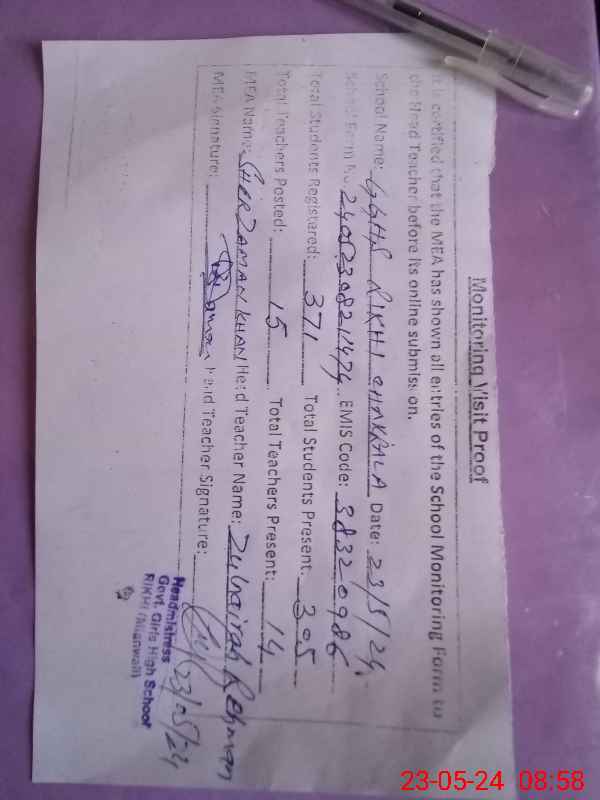 Monitoring Visit Proof
It is certified that the MEA has shown all entries of the School Monitoring Form to
the Head Teacher before its online submission.
School Name: GGHS RIKHI Date: 23/5/24
School Form No. EMIS Code: 38320986
Total Students Registered: 371 Total Students Present: 305
Total Teachers Posted: 15 Total Teachers Present: 14
MEA Name: SHER ZAMAN KHAN Head Teacher Name: Zubairah Rehman
MEA Signature: Head Teacher Signature:
23/05/24
Headmistress
Govt. Girls High School
RIKHI (Mianwali)
23-05-24 08:58